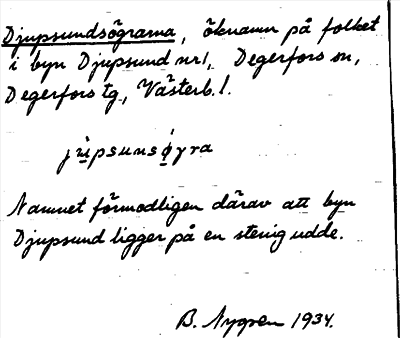 Djupsundsögrarna, öknamn på folket
i byn Djupsund nr 1, Degerfors sn,
Degerfors tg, Västerb. l.
Namnet förmodligen därav att byn
Djupsund ligger på en stenig udde.
B. Nygren 1934.